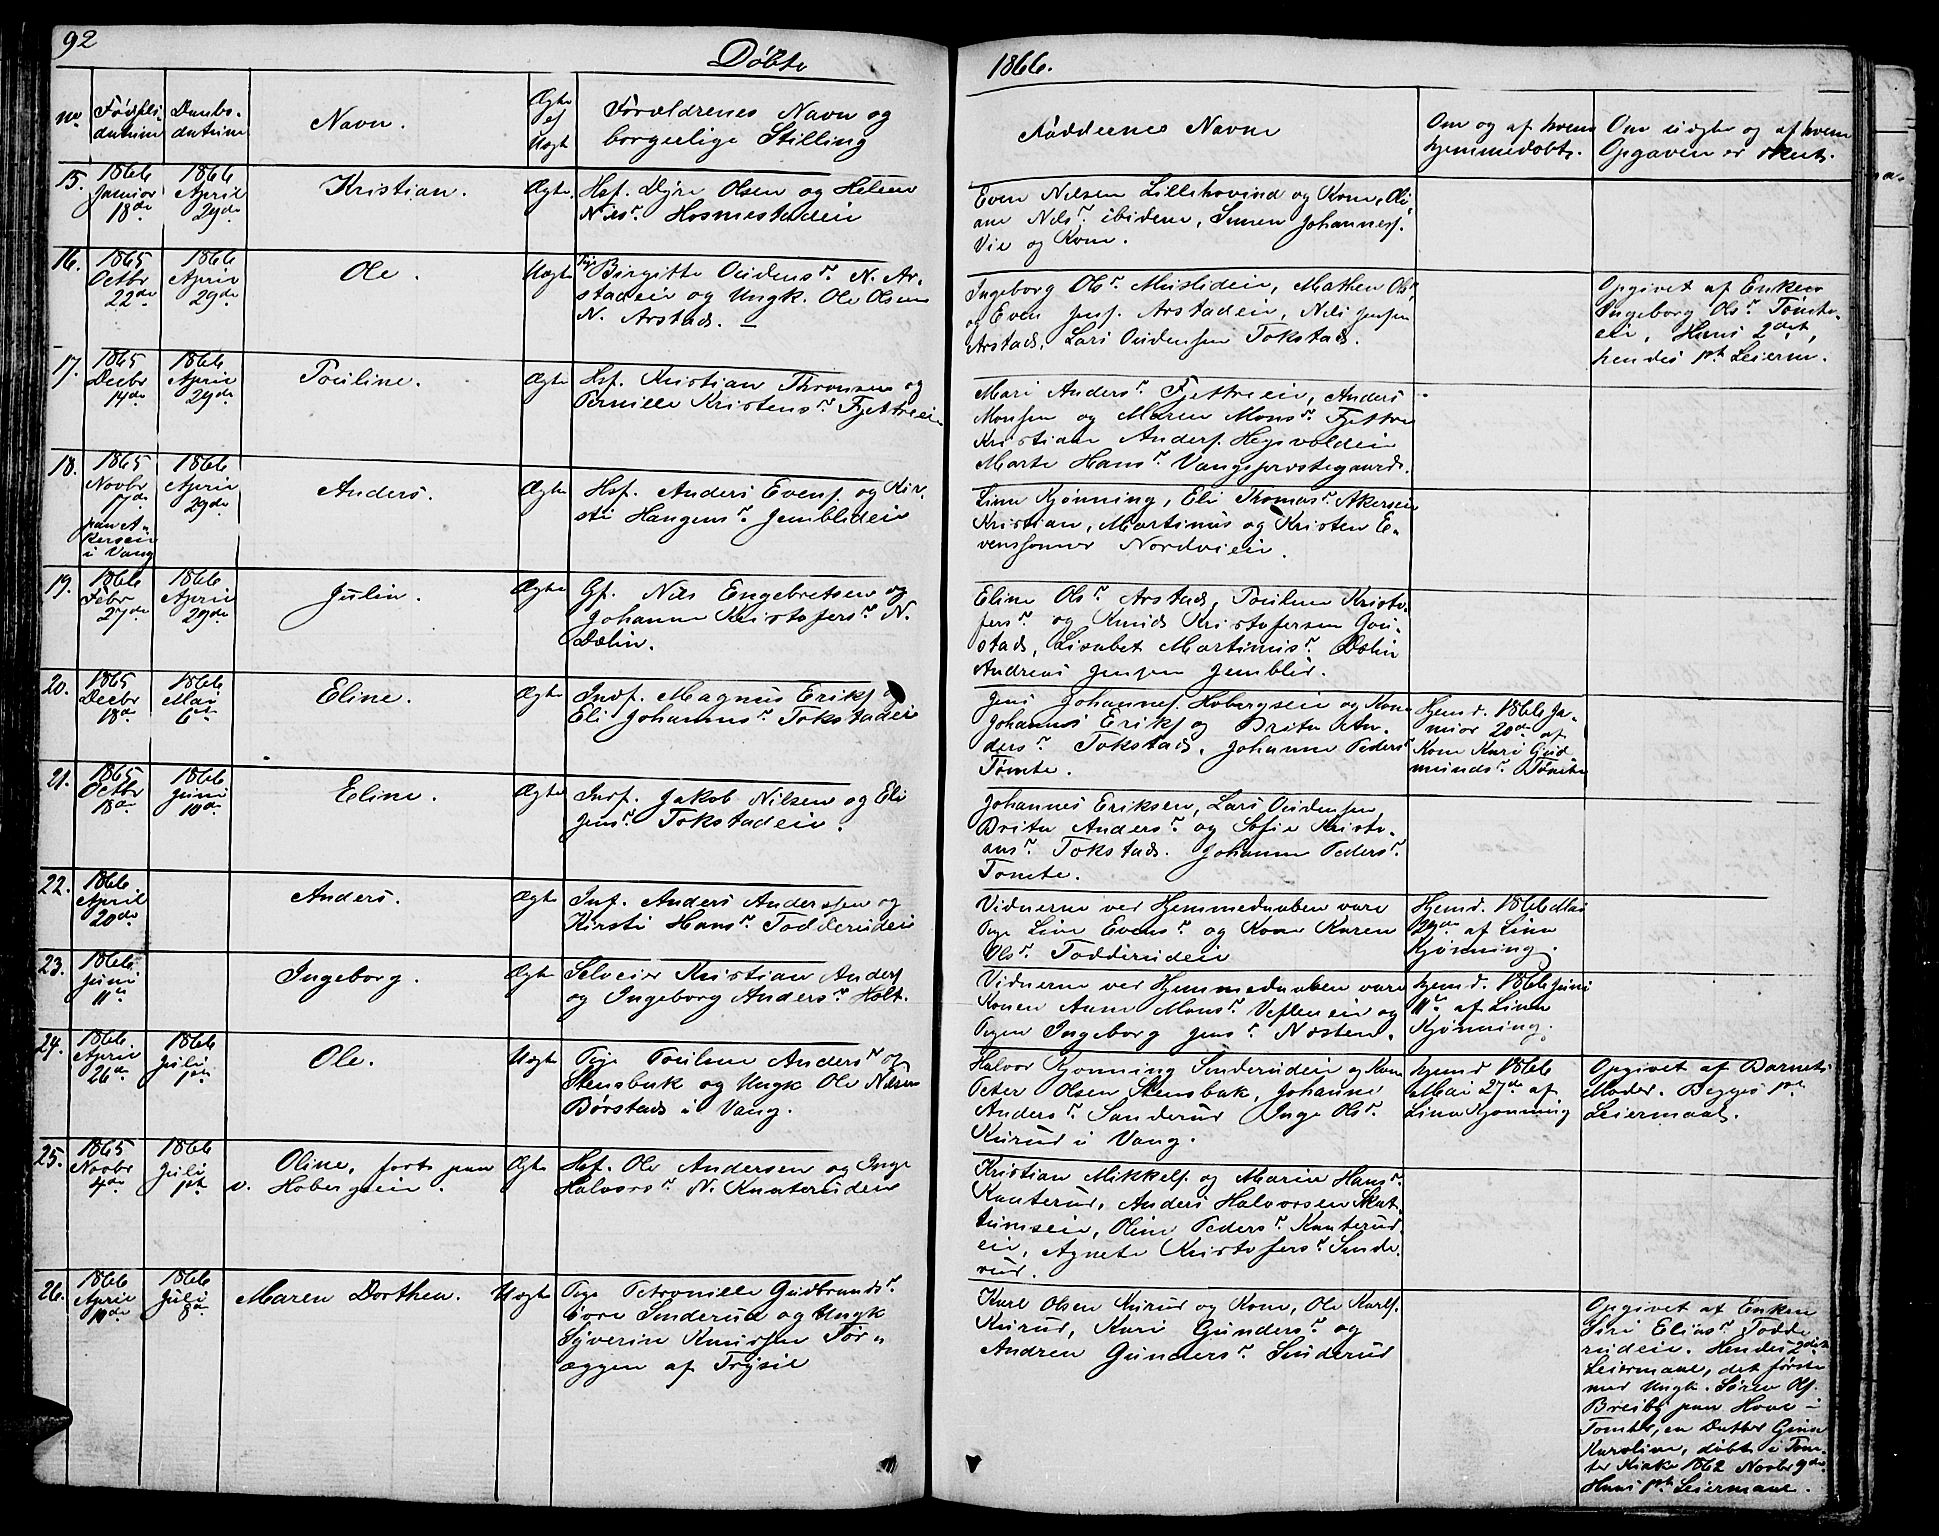 92
Døbte
1866.
No
Fødsels-
datum
Daabs-
datum
Navn.
Ægte
ej
Uægte
Forældrenes Navn og
borgerlige Stilling
Faddernes Navne
Om og af hvem
hjemmedøbt.
Om uægte og af hvem
Opgaven er skeet.
15.
1866
Januar
18de
1866
April
29de
Kristian.
Ægte
Hsf. Olsen og Helene
Nilsr. Hosmestadeie
Even Nilsen Lillehovind og Kone, Oli-
ane Nilsr. ibidem, Simen Johannesf.
Vie og Kone.
16.
1865
Octbr
22de
1866
April
29de
Ole.
Uægte
Pige Birgitte Oudensr. N. Ar-
stadeie og Ungk. Ole Olsen
N. Arstad. —
Ingeborg Olsr. Muslideie, Mathea Olsr.
og Even Jensf. Arstadeie, Nils Jensen
Arstad, Lars Oudensen Tokstad.
Opgivet af Enken
Ingeborg Olsr. Tomte-
eie, Hans 2det,
hendes 1ste Leierm.
17.
1865
Decbr
14de
1866
April
29de
Pouline.
Ægte
Hsf. Kristian Thronsen og
Pernille Kristensr. Fjetreeie
Mari Andersr. Fjettreeie, Anders
Monsen og Maren Monsr. Fjettre
Kristian Andersf. Hegsvoldeie
Marte Hansr. Vangspræstegaard.
18.
1865
Novbr
17de
paa A-
kerseie
i Vang
1866
April
29de
Anders.
Ægte
Hsf. Anders Evensf. og Kir-
sti Haagensr. Jemblideie
Lina Kjønning, Eli Thomasr. Akerseie
Kristian, Martinus og Kristen E-
venssønner Nordvieie.
19.
1866
Febr
27de
1866
April
29de
Julie.
Ægte
Gf. Nils Engebretsen og
Johanne Kristofersr. N.
Dælin.
Eline Olsr. Arstad, Pouline Kristo-
fersr. og Knud Kristofersen Gou-
stad, Lisabet Martinusr. Dælin
Andreas Jensen Jemblid.
20.
1865
Decbr
18de
1866
Mai
6te
Eline.
Ægte
Indf. Magnus Eriksf. og
Eli Johannesr. Tokstadeie
Jens Johannesf. Hobergseie og Kone
Johannes Eriksf. og Brita An-
dersr. Tokstad. Johanne Pedersr.
Tomte.
Hjemd. 1866 Ja-
nuar 20de af
Kone Kari Gud-
mundsr. Tomte
21.
1865
Octbr
18de
1866
Juni
10de
Eline.
Ægte
Indf. Jakob Nilsen og Eli
Jensr. Tokstadeie.
Johannes Eriksen, Lars Oudensen,
Brita Andersr. og Sofie Kristi-
ansr. Tokstad. Johanne Pedersr.
Tomte.
22.
1866
April
20de
Anders.
Ægte
Indf. Anders Andersen og
Kirsti Hansr. Todderudeie
Vidnerne ved Hjemmedaaben vare
Pige Line Evensr. og Kone Karen
Olsr. Todderudeie
Hjemd. 1866 Mai
29de af Lina
Kjønning.
23.
1866
Juni
11te
Ingeborg.
Ægte
Selveier Kristian Andersf.
og Ingeborg Andersr. Holt.
Vidnerne ved Hjemmedaaben vare
Konen Anne Monsr. Vefleneie og
Pigen Ingeborg Jensr. Næsten.
Hjemd. 1866 Juni
11te af Lina
Kjønning.
24.
1866
April
26de
1866
Juli
1ste
Ole.
Uægte
Pige Pouline Andersr. af
Stensbak og Ungk Ole Nilsen
Børstad i Vang.
Halvor Kjønning Sinderudeie og Kone
Peter Olsen Stensbak, Johanne
Andersr. Sanderud Inge Olsr.
Kurud i Vang.
Hjemd 1866
Mai 27de af
Lina Kjønning
Opgivet af Barnets
Moder. Begges 1ste
Leiermaal.
25.
1865
Novbr
4de
1866
Juli
1ste
Oline, født paa
v. Hobergseie.
Ægte
Hsf. Ole Andersen og Inge
Halvorsr. N. Kaaterudeie
Kristian Mikkelsf. og Marie Hansr.
Kaaterud, Anders Halvorsen Skat-
tumseie, Oline Pedersr. Kaaterud-
eie, Agnete Kristofersr. Sinde-
rud.
26.
1866
April
10de
1866
Juli
8de
Maren Dorthea.
Uægte
Pige Petronille Gudbrandsr.
øvre Sinderud og Ungk
Syverin Knudsen Tør-
æggen af Trysil
Karl Olsen Kurud og Kone, Ole Karlsf.
Kurud, Kari Gundersr. og
Andrea Gundersr. Sinderud
Opgivet af Enken
Siri Eliasr. Todde-
rudeie. Hendes 2det
Leiermaal, det første
med Ungk. Søren Olsf.
Breiby paa Hove i
Tomter, en Datter Gina
Karoline, døbt i Tom-
ter Kirke 1862 Novbr 9de.
Hans 1ste Leiermaal.